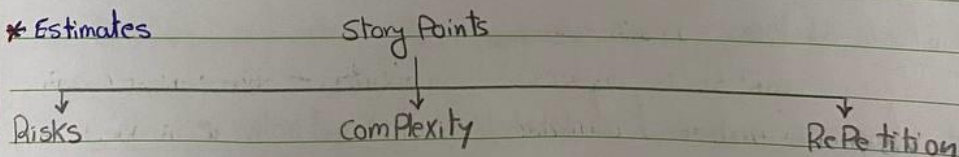 * Estimates Story Points
Risks Complexity RePetition